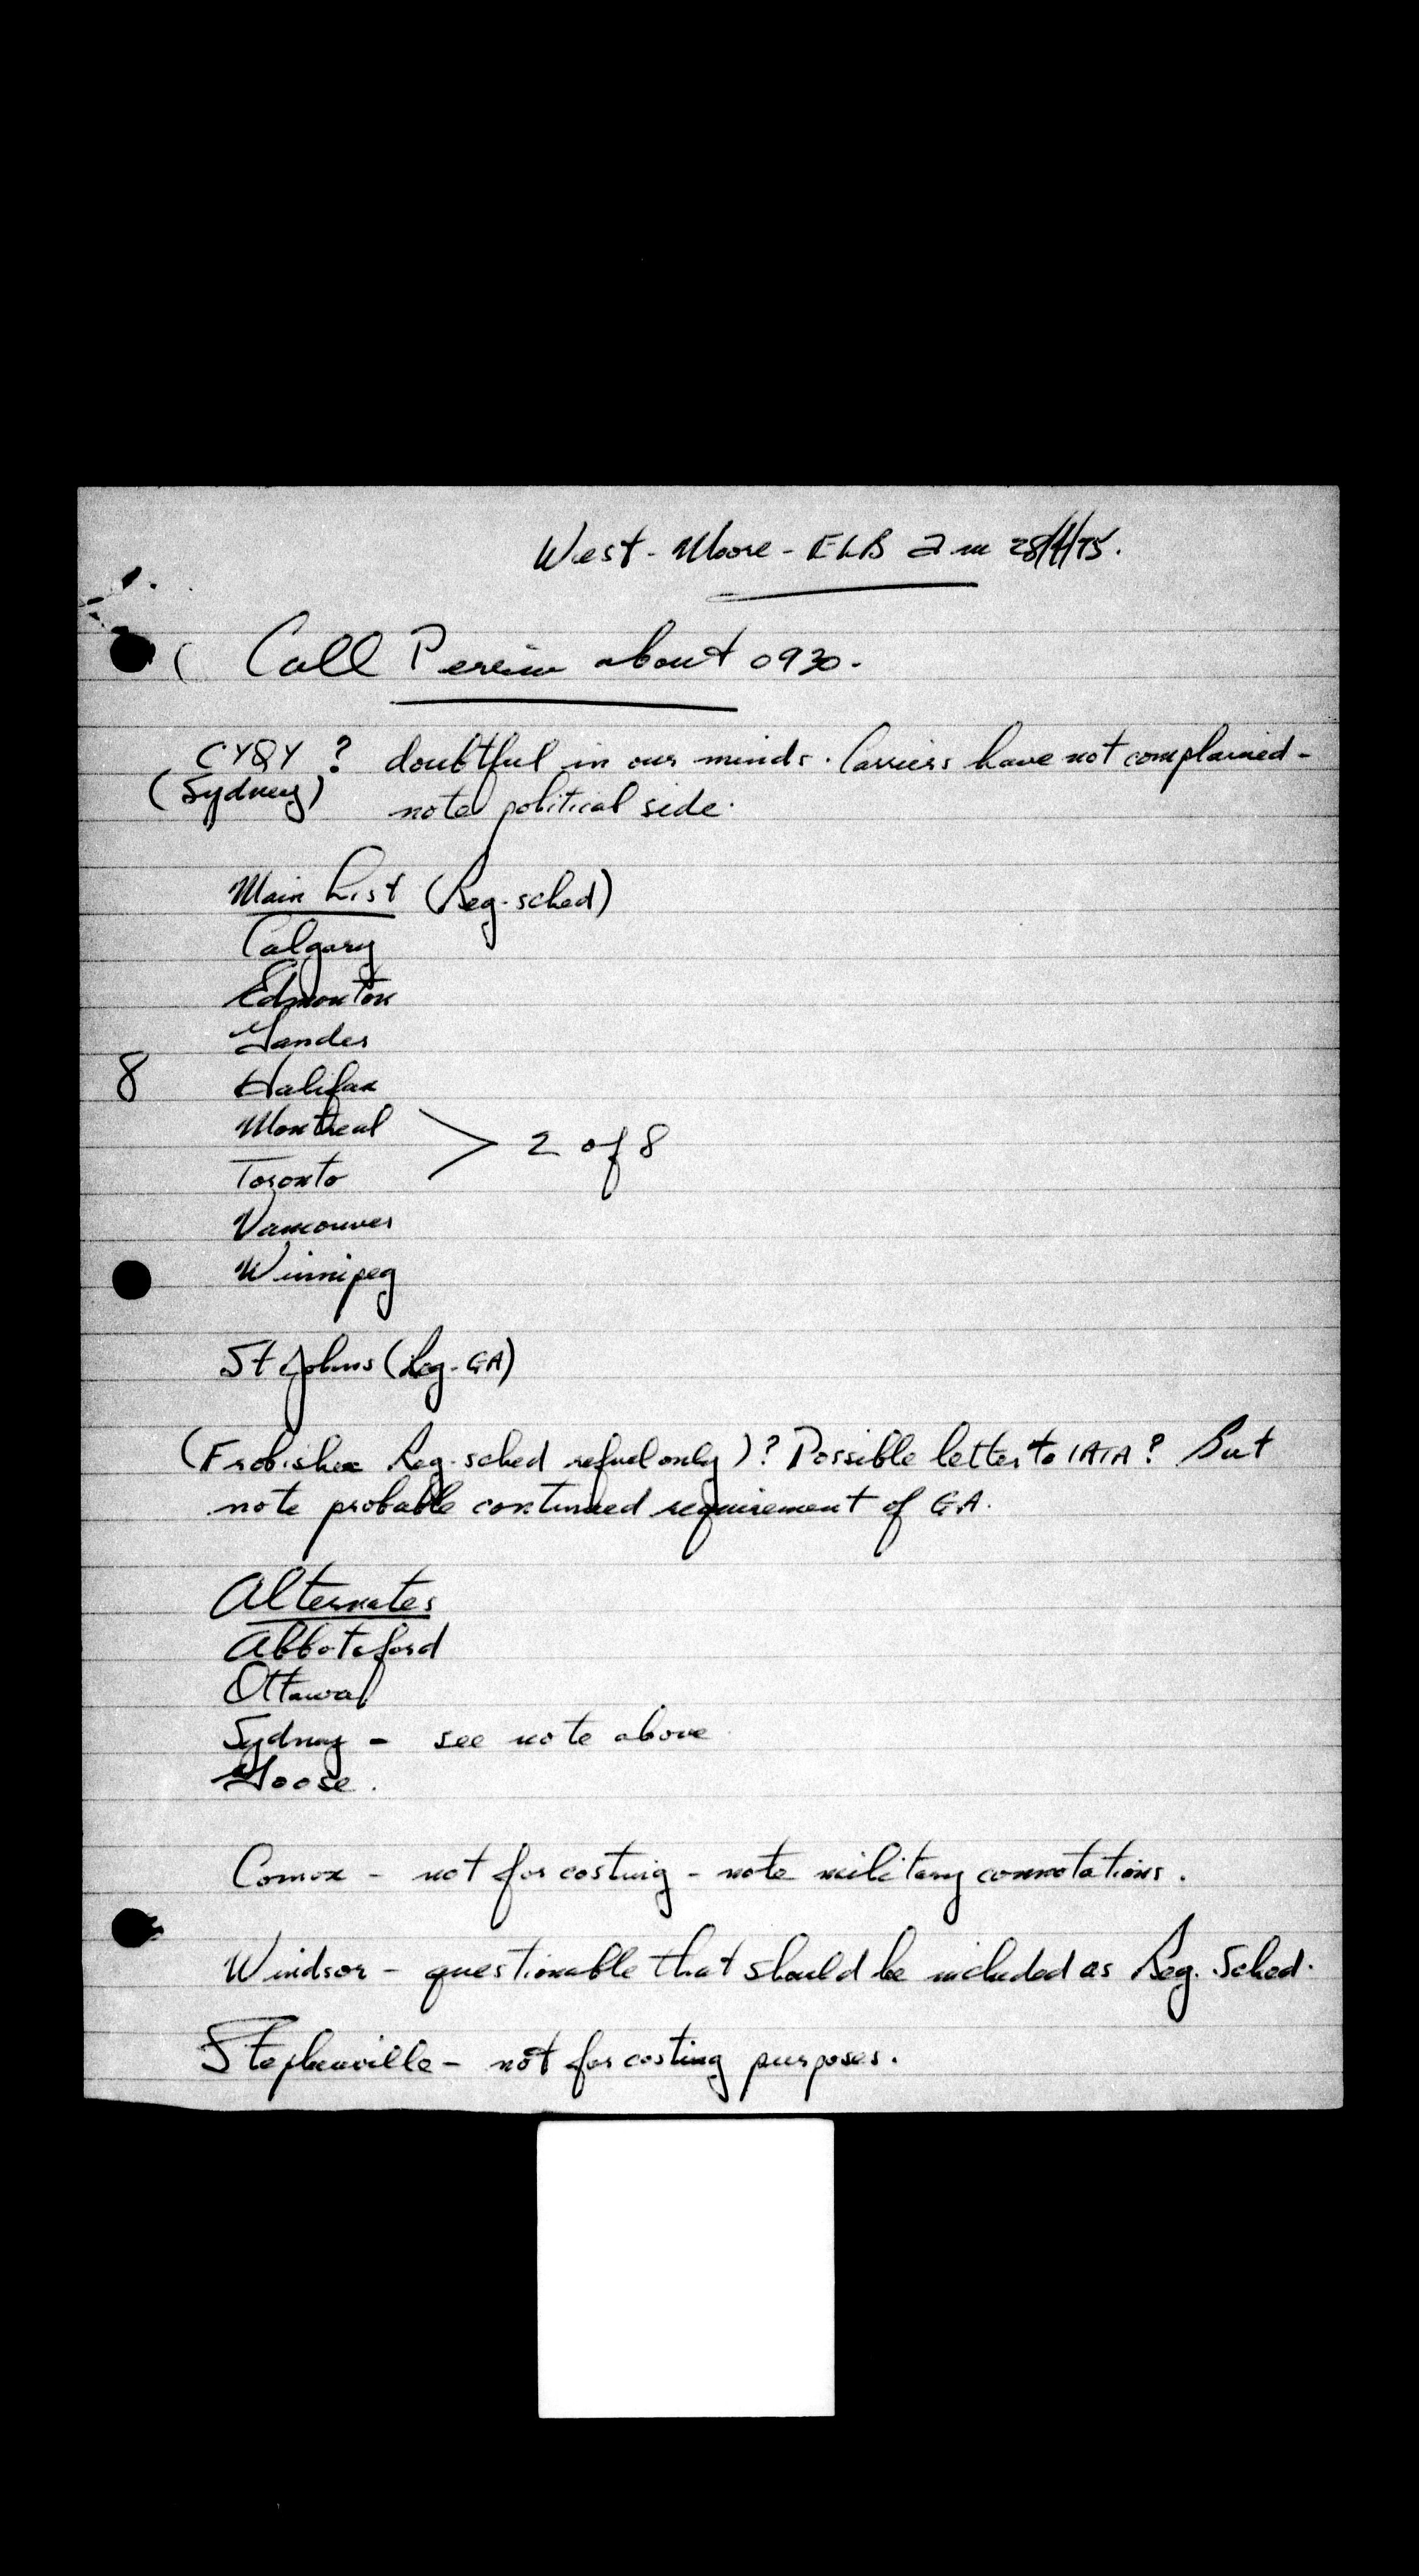 West - Moore - ELB am 28/4/75.
Call about 0930.
CYQY ? doubtful in our minds. Carriers have not complained -
(Sydney) note political side.
Main List (Reg-sched)
Calgary
Edmonton
Gander
8 Halifax
Montreal
Toronto > 2 of 8
Vancouver
Winnipeg
St Johns (Reg-GA)
(Frobisher Reg-sched refuel only)? Possible letter to IATA? But
note probable continued requirement of GA.
Alternates
Abbotsford
Ottawa
Sydney - see note above
Goose.
Comox - not for costing - note military connotations.
Windsor - questionable that should be included as Reg. Sched.
Stephenville - not for costing purposes.